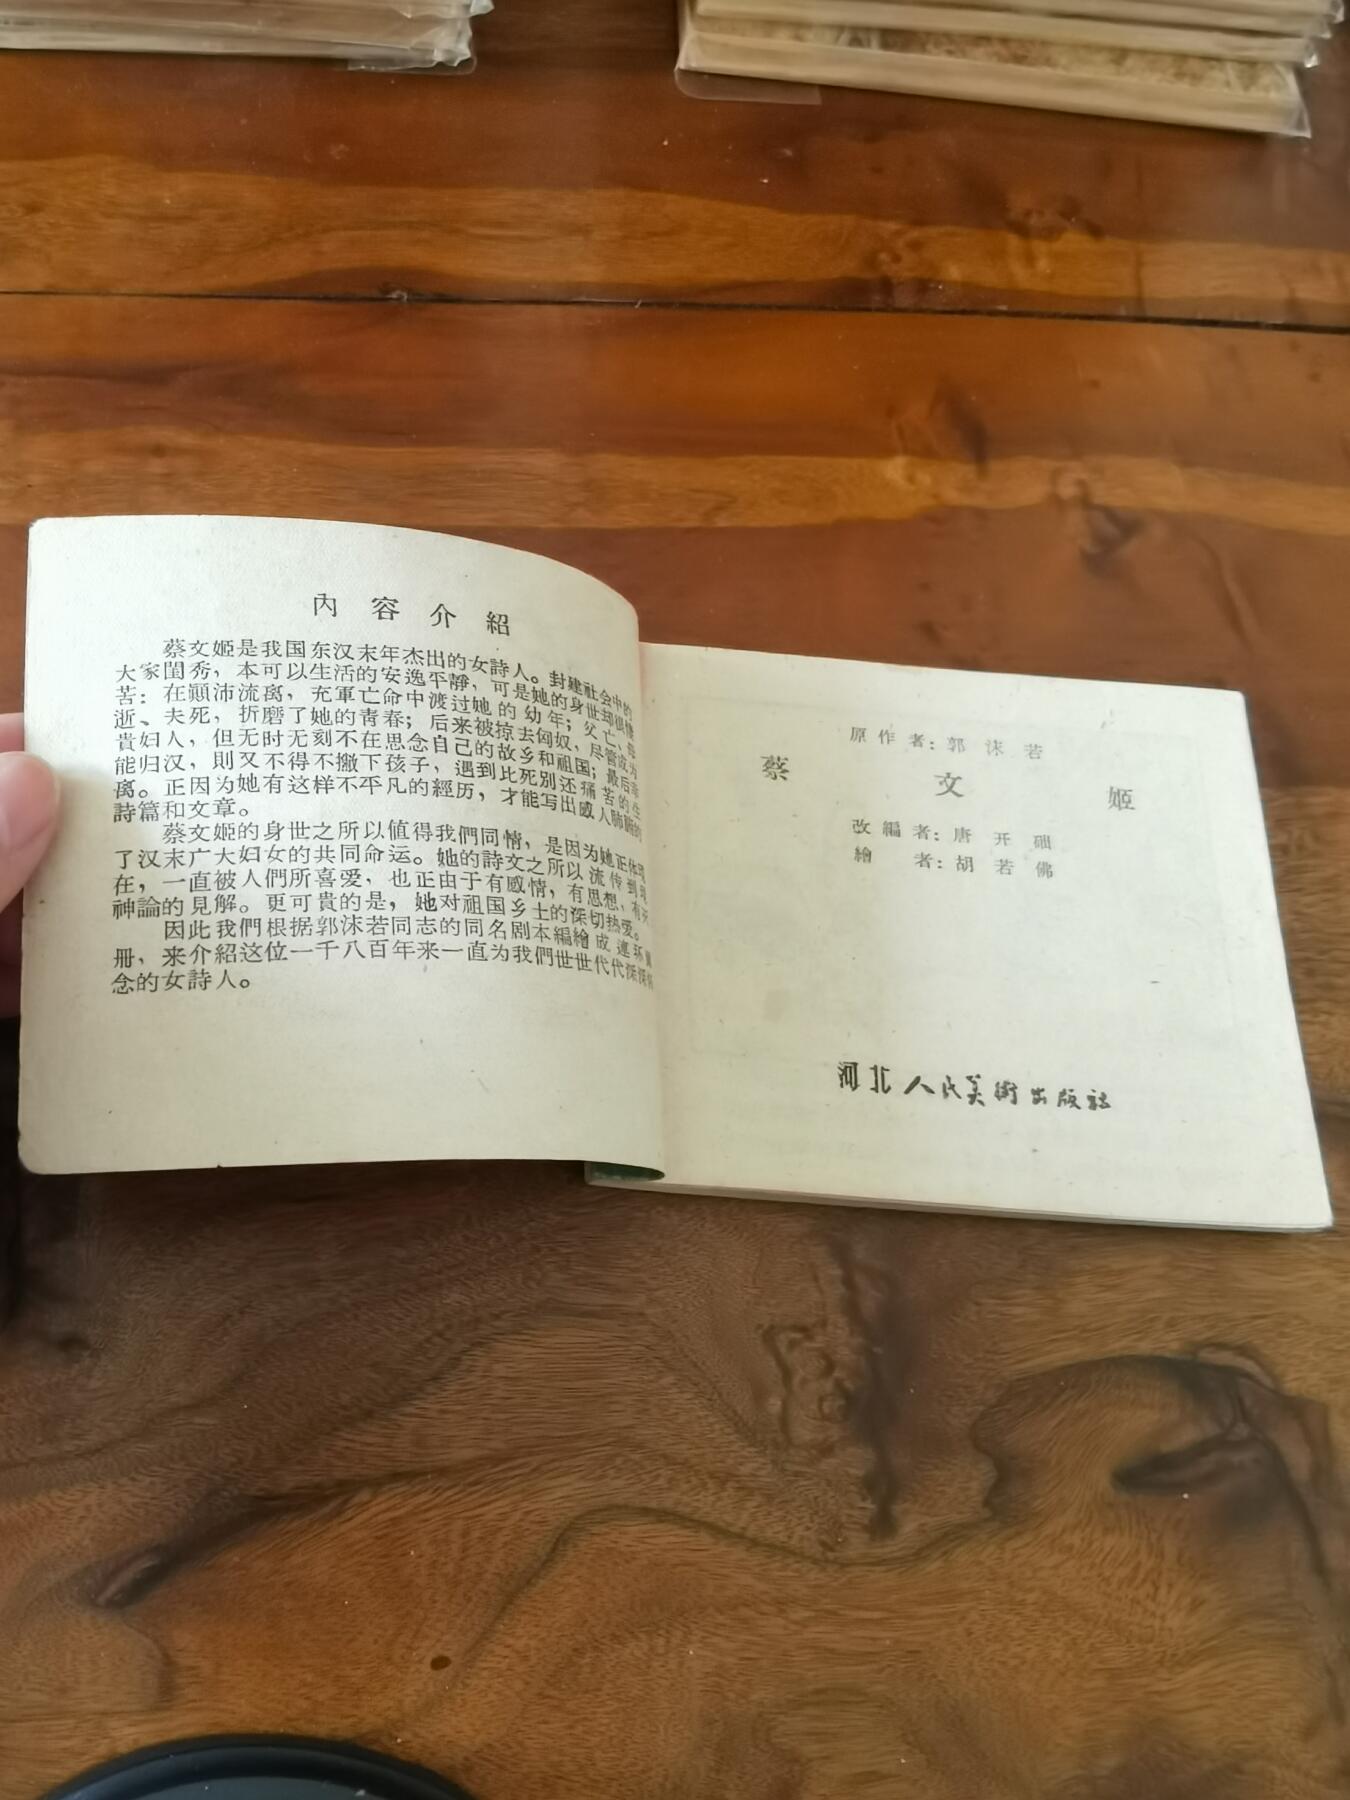 內容介紹
蔡文姬是我国东汉末年杰出的女詩人。封建社会中的
大家閨秀，本可以生活的安逸平靜，可是她的身世却很悽
苦：在顚沛流离，充軍亡命中渡过她的幼年；父亡、母
逝、夫死，折磨了她的青春；后来被掠去匈奴，尽管成为
貴妇人，但无时无刻不在思念自己的故乡和祖国；最后幸
能归汉，則又不得不撇下孩子，遇到比死別还痛苦的生
离。正因为她有这样不平凡的經历，才能写出感人肺腑的
詩篇和文章。
蔡文姬的身世之所以值得我們同情，是因为她正体现
了汉末广大妇女的共同命运。她的詩文之所以流传到现
在，一直被人們所喜爱，也正由于有感情，有思想，有
神論的見解。更可貴的是，她对祖国乡土的深切热爱。
因此我們根据郭沫若同志的同名剧本編繪成連环圖
册，来介紹这位一千八百年来一直为我們世世代代深深
念的女詩人。
原作者：郭沫若
蔡文姬
改編者：唐开础
繪者：胡若佛
河北人民美術出版社